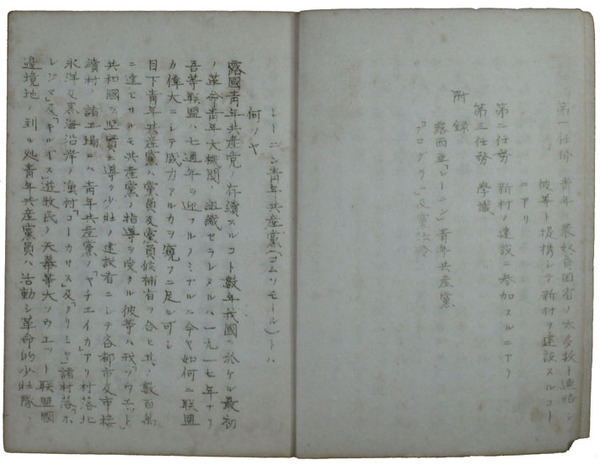 第一任務 青年ハ農奴貧困者ノ大多数ト連絡シ
彼等ト提携シテ新村ヲ建設スルコト
ニアリ
第二任務 新村ノ建設ニ参加スルニアリ
第三任務 學識
附録
露西亜「レーニン」青年共産黨
「プログラム」及黨規
レーニン青年共産黨(コムソモール)トハ
何ソヤ
露國青年共産党ノ存続スルコト数年我國ニ於ケル最初
ノ革命青年大機関ノ組織セラレタルハ一九一七年ナリ
吾等联盟ハ七週年ヲ迎フルノミナルニ今ヤ如何ニ联盟
カ偉大ニシテ威力アルカヲ窺フニ足ル可シ
目下青年共産黨ハ黨員及黨員候補者ヲ合シ其ノ数百萬
ニ達セリ共産黨ノ指導ヲ受クル彼等ハ我「ソウエット」
共和國ヲ堅實ニ導ク少壮ノ建設者ニシテ各都市及市接
續村ノ諸工場ニハ青年共産黨ノ「ヤチエイカ」アリ村落北
氷洋及黒海沿岸ノ漁村「コーカサス」及「クリミヤ」諸村落
「キルギス」遊牧民ノ天幕等大ソウエット联盟國
邊境地到ル処青年共産黨員ハ活動シ革命的少壮隊ハ